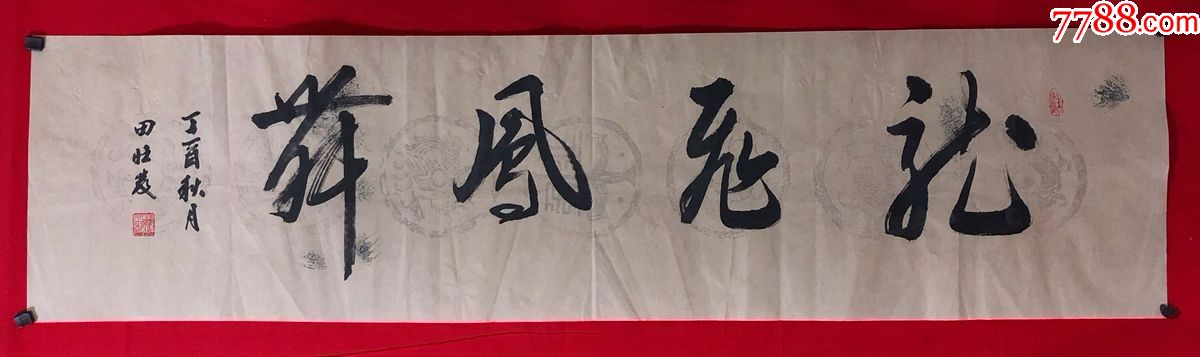 7788.com
龍飛鳳舞
丁酉秋月
田旺发